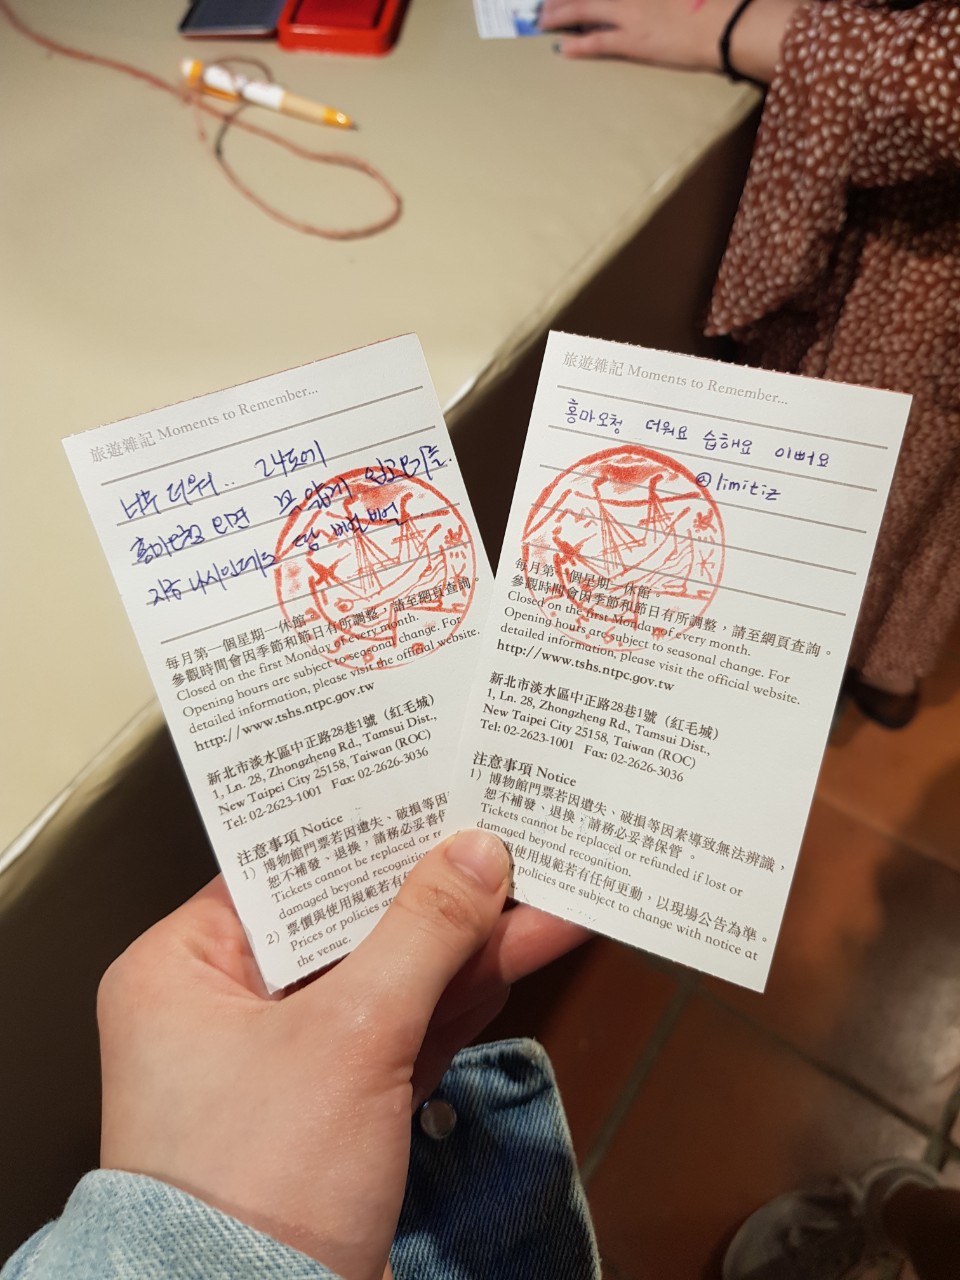 旅遊雜記 Moments to Remember...
너무 더워.. 24도에
홍마오청 오면 옷 얇게 입고오기를.
지금 나시인데도 땀 삐뻘
每月第一個星期一休館。
參觀時間會因季節和節日有所調整，請至網頁查詢。
Closed on the first Monday of every month.
Opening hours are subject to seasonal change. For
detailed information, please visit the official website.
http://www.tshs.ntpc.gov.tw
新北市淡水區中正路28巷1號（紅毛城）
1, Ln. 28, Zhongzheng Rd., Tamsui Dist.,
New Taipei City 25158, Taiwan (ROC)
Tel: 02-2623-1001 Fax: 02-2626-3036
注意事項 Notice
1）博物館門票若因遺失、破損等因
恕不補發、退換，請務必妥善保
Tickets cannot be replaced or re
damaged beyond recognition
2）票價與使用規範若有任
Prices or policies ar
the venue.
旅遊雜記 Moments to Remember...
홍마오청 더워요 습해요 이뻐요
@limitiz
每月第一個星期一休館。
參觀時間會因季節和節日有所調整，請至網頁查詢。
Closed on the first Monday of every month.
Opening hours are subject to seasonal change. For
detailed information, please visit the official website.
http://www.tshs.ntpc.gov.tw
新北市淡水區中正路28巷1號（紅毛城）
1, Ln. 28, Zhongzheng Rd., Tamsui Dist.,
New Taipei City 25158, Taiwan (ROC)
Tel: 02-2623-1001 Fax: 02-2626-3036
注意事項 Notice
1）博物館門票若因遺失、破損等因素導致無法辨識，
恕不補發、退換，請務必妥善保管。
Tickets cannot be replaced or refunded if lost or
damaged beyond recognition.
與使用規範若有任何更動，以現場公告為準。
policies are subject to change with notice at